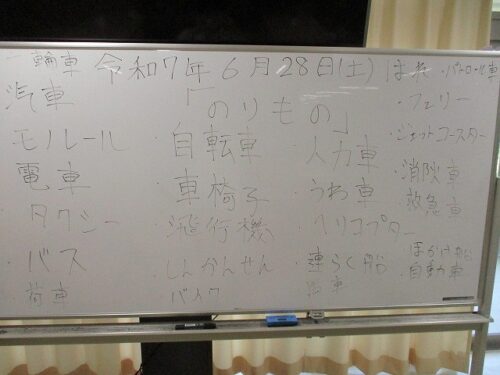 一輪車 令和7年6月28日(土) はれ ・パトロール車
汽車
「のりもの」
・フェリー
・モノレール
・自転車
・人力車
・ジェットコースター
・電車
・車椅子
・うわ車
・消防車
救急車
・タクシー
・飛行機
・ヘリコプター
・バス
・しんかんせん
・連らく船
・ほかけ船
・自動車
・荷車
・バイク